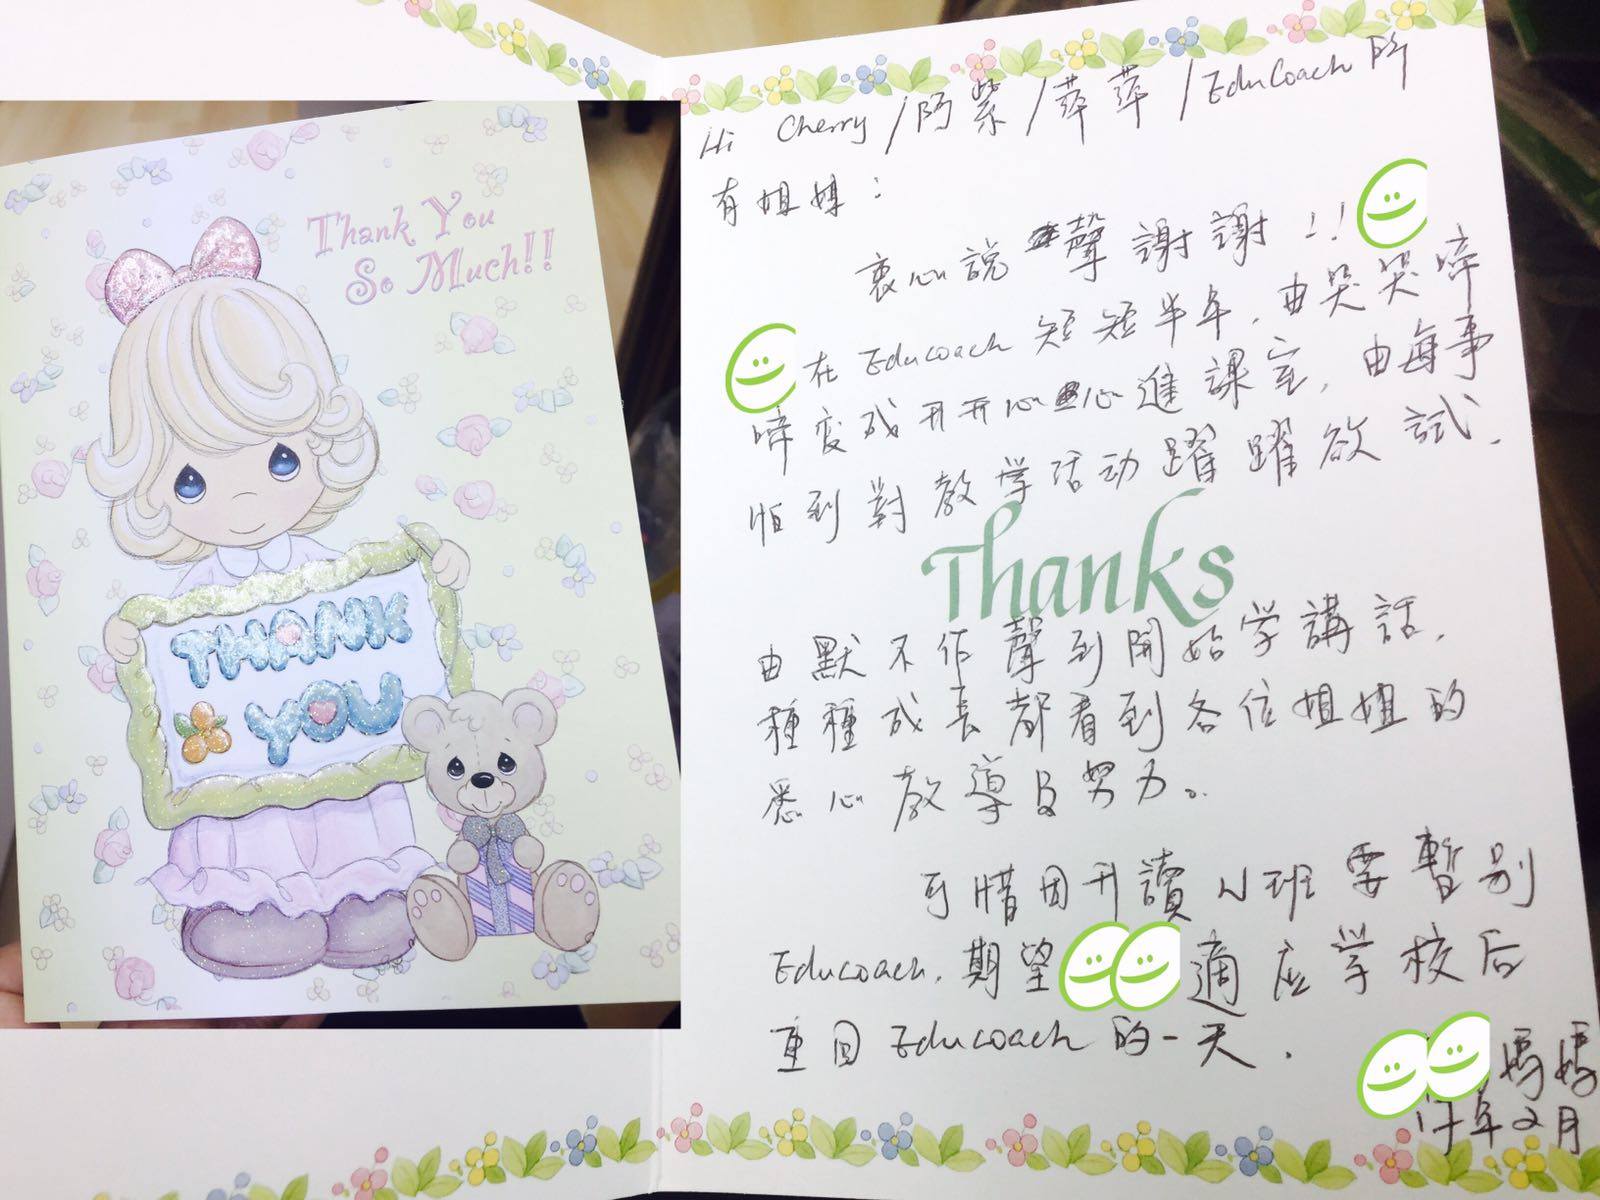 Thank You
So Much!!
THANK
YOU
Hi Cherry/阿紫/萍萍/EduCoach 所
有姐姐：
衷心說一聲謝謝!!
在Educoach 短短半年，由哭哭啼
啼变成开开心心進課室，由每事
怕到對教学活动躍躍欲試，
Thanks
由默不作聲到開始学講話，
種種成長都看到各位姐姐的
悉心教導及努力。
可惜因升讀N班要暫别
Educoach，期望適应学校后
重回Educoach的一天．
媽媽
17年2月